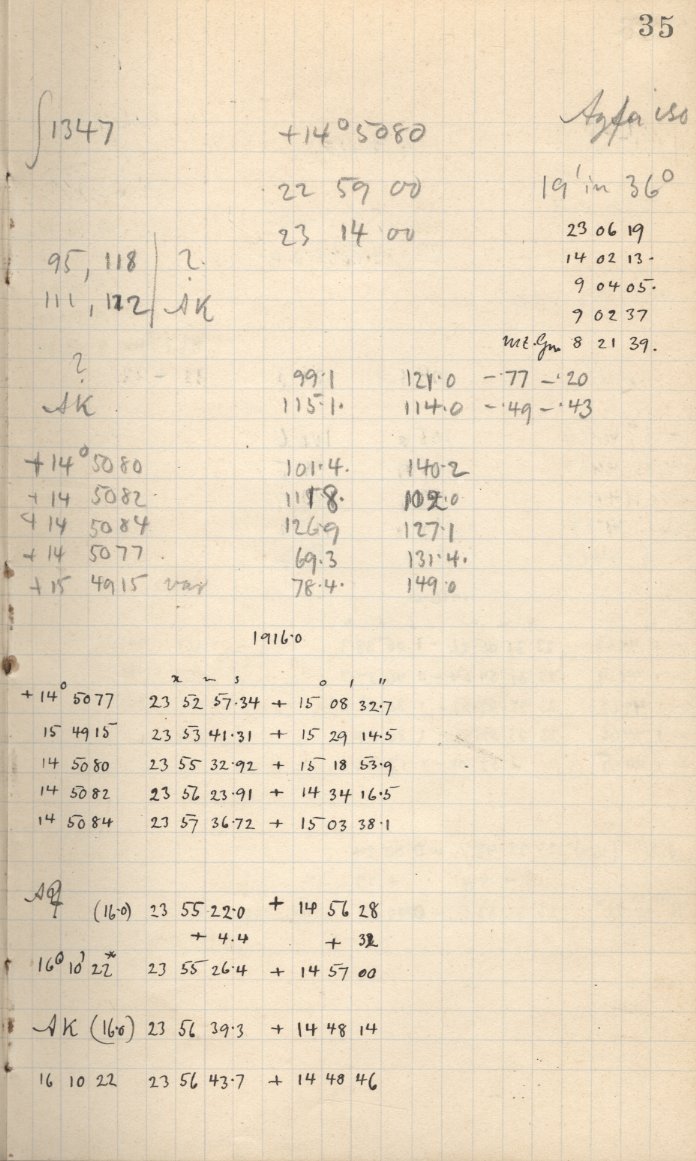 35
∫1347 +14° 5080 Agfa iso
22 59 00 19' in 36°
23 14 00
23 06 19
14 02 13.
9 04 05.
9 02 37
M.E. Gm 8 21 39.
95, 118 | ?
111, 122 | AK
? 99.1 121.0 -.77 -.20
AK 115.1. 114.0 -.49 -.43
+14° 5080 101.4. 140.2
+14 5082 111.8. 102.0
+14 5084 126.9 127.1
+14 5077 69.3 131.4.
+15 4915 var 78.4. 149.0
1916.0
m s ° ' "
+14° 5077 23 52 57.34 + 15 08 32.7
15 4915 23 53 41.31 + 15 29 14.5
14 5080 23 55 32.92 + 15 18 53.9
14 5082 23 56 23.91 + 14 34 16.5
14 5084 23 57 36.72 + 15 03 38.1
(16.0) 23 55 22.0 + 14 56 28
+ 4.4 + 32
16 10 22 23 55 26.4 + 14 57 00
AK (16.0) 23 56 39.3 + 14 48 14
16 10 22 23 56 43.7 + 14 48 46